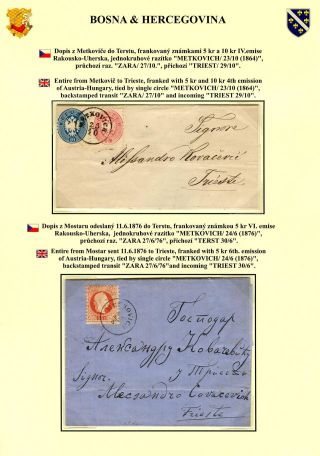 BOSNA & HERCEGOVINA
Dopis z Metkoviče do Terstu, frankovaný známkami 5 kr a 10 kr IV.emise
Rakousko-Uherska, jednokruhové razítko "METKOVICH/ 23/10 (1864)",
průchozí raz. "ZARA/ 27/10.", příchozí "TRIEST/ 29/10".
Entire from Metkovič to Trieste, franked with 5 kr and 10 kr 4th emission
of Austria-Hungary, tied by single circle "METKOVICH/ 23/10 (1864)",
backstamped transit "ZARA/ 27/10" and incoming "TRIEST 29/10".
Signor
Alessandro Kovačević
Trieste
Dopis z Mostaru odeslaný 11.6.1876 do Terstu, frankovaný známkou 5 kr VI. emise
Rakousko-Uherska, jednokruhové razítko "METKOVICH/ 24/6 (1876)",
průchozí raz. "ZARA 27/6/76", příchozí "TERST 30/6".
Entire from Mostar sent 11.6.1876 to Trieste, franked with 5 kr 6th. emission
of Austria-Hungary, tied by single circle "METKOVICH/ 24/6 (1876)",
backstamped transit "ZARA 27/6/76"and incoming "TRIEST 30/6".
Господар
Александру Ковачевићу
у Трсту
Signor
Alessandro Covacevich
Trieste